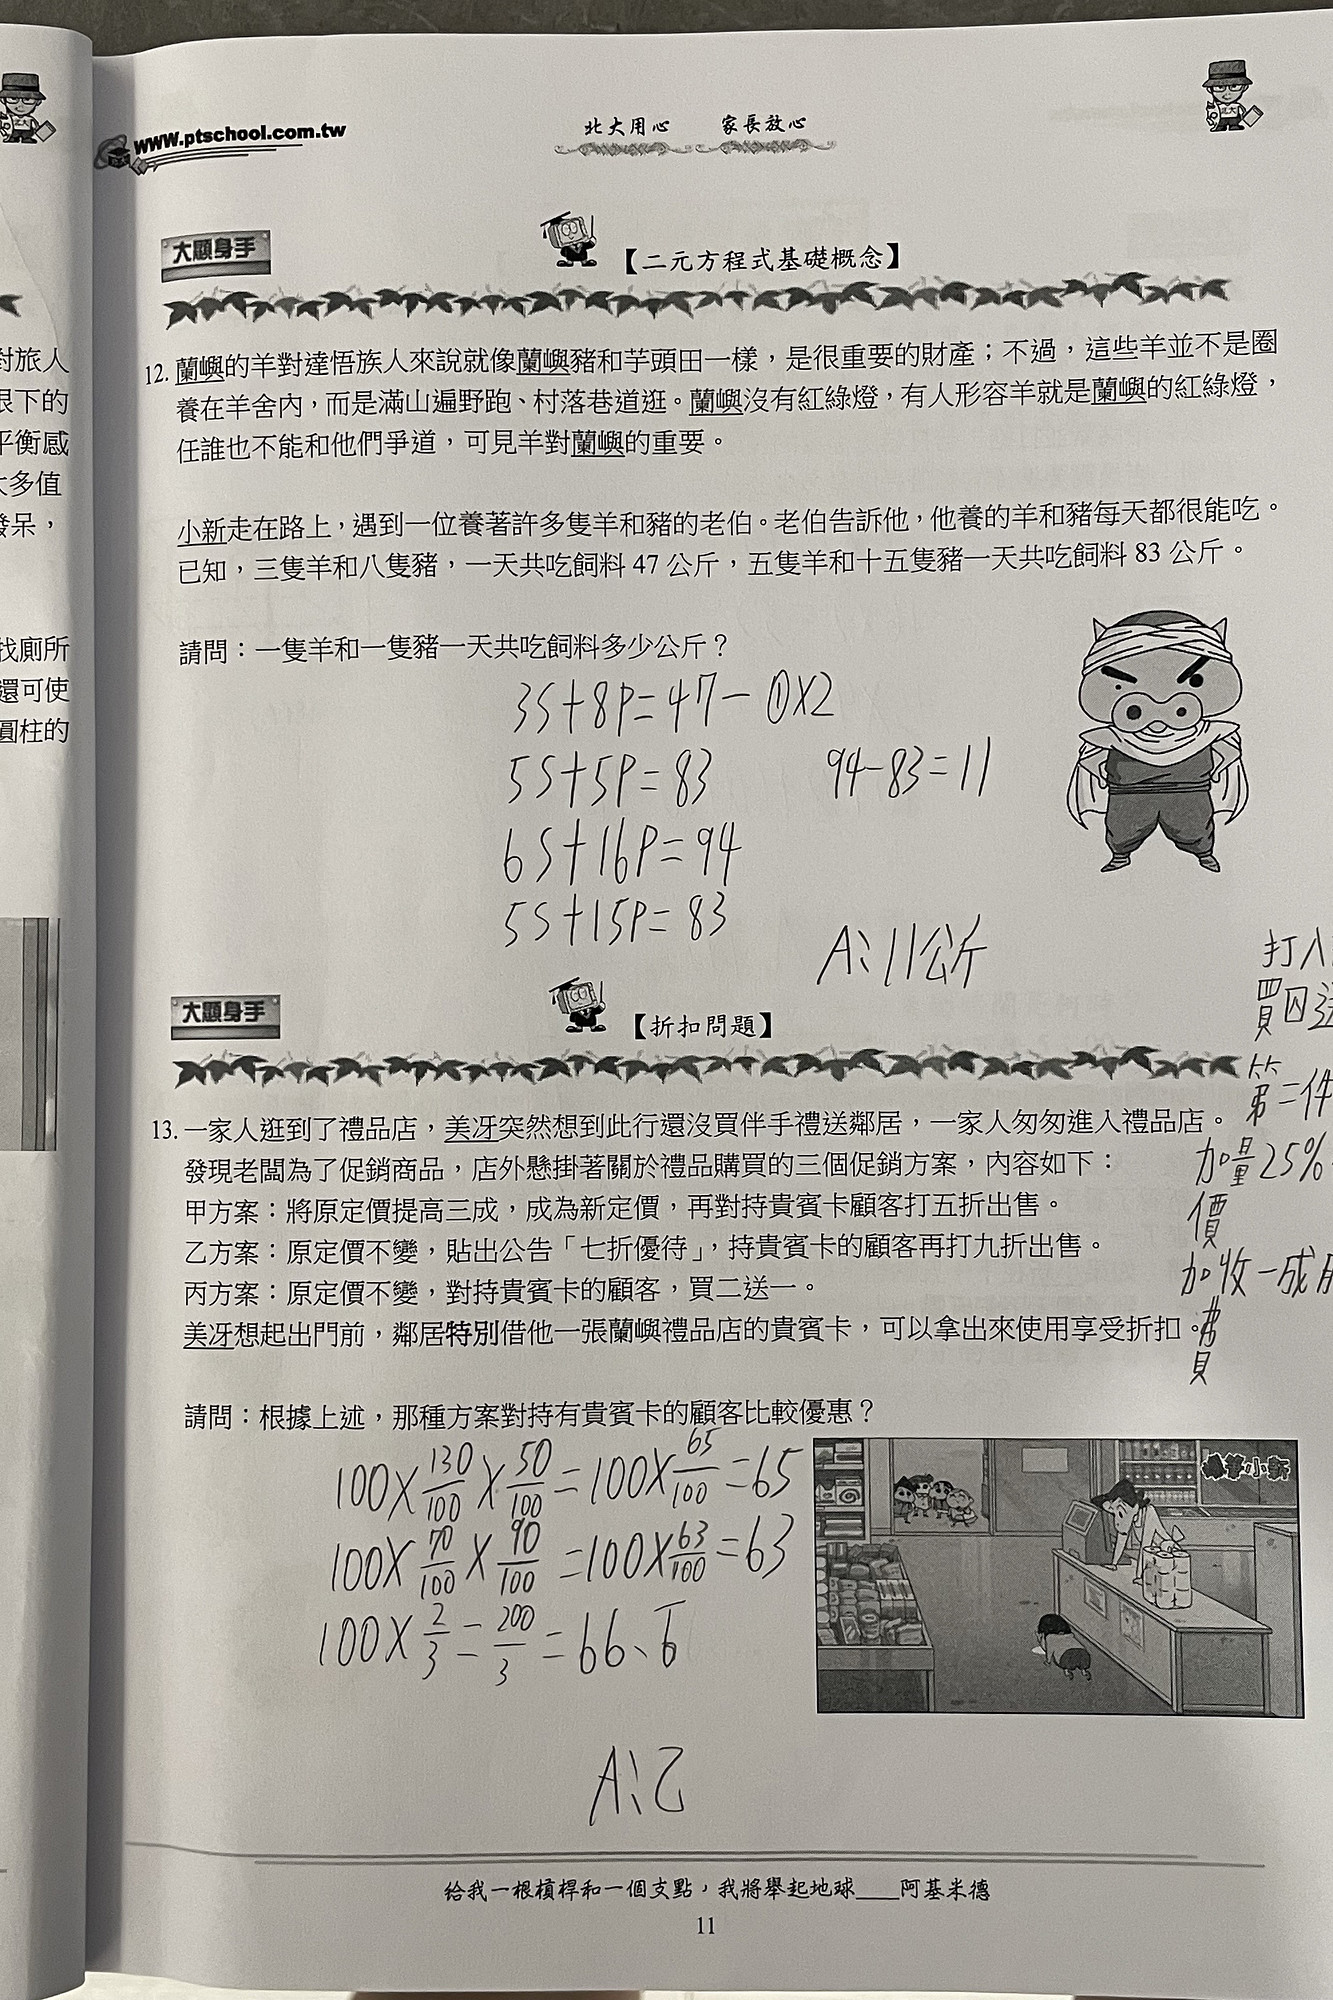 www.ptschool.com.tw
北大用心　家長放心
大顯身手
【二元方程式基礎概念】
12. 蘭嶼的羊對達悟族人來說就像蘭嶼豬和芋頭田一樣，是很重要的財產；不過，這些羊並不是圈
養在羊舍內，而是滿山遍野跑、村落巷道逛。蘭嶼沒有紅綠燈，有人形容羊就是蘭嶼的紅綠燈，
任誰也不能和他們爭道，可見羊對蘭嶼的重要。
小新走在路上，遇到一位養著許多隻羊和豬的老伯。老伯告訴他，他養的羊和豬每天都很能吃。
已知，三隻羊和八隻豬，一天共吃飼料 47 公斤，五隻羊和十五隻豬一天共吃飼料 83 公斤。
請問：一隻羊和一隻豬一天共吃飼料多少公斤？
3S+8P=47－①X2
5S+5P=83
94-83=11
6S+16P=94
5S+15P=83
A:11公斤
大顯身手
【折扣問題】
13. 一家人逛到了禮品店，美冴突然想到此行還沒買伴手禮送鄰居，一家人匆匆進入禮品店。
發現老闆為了促銷商品，店外懸掛著關於禮品購買的三個促銷方案，內容如下：
甲方案：將原定價提高三成，成為新定價，再對持貴賓卡顧客打五折出售。
乙方案：原定價不變，貼出公告「七折優待」，持貴賓卡的顧客再打九折出售。
丙方案：原定價不變，對持貴賓卡的顧客，買二送一。
美冴想起出門前，鄰居特別借他一張蘭嶼禮品店的貴賓卡，可以拿出來使用享受折扣。
請問：根據上述，那種方案對持有貴賓卡的顧客比較優惠？
打八
買四送
第二件
加量25%
價
加收一成服
費
100X130/100X50/100=100X65/100=65
100X70/100X90/100=100X63/100=63
100X2/3=200/3=66.6̅
A:乙
蠟筆小新
給我一根槓桿和一個支點，我將舉起地球____阿基米德
11
對旅人
眼下的
平衡感
大多值
發呆，
找廁所
還可使
圓柱的